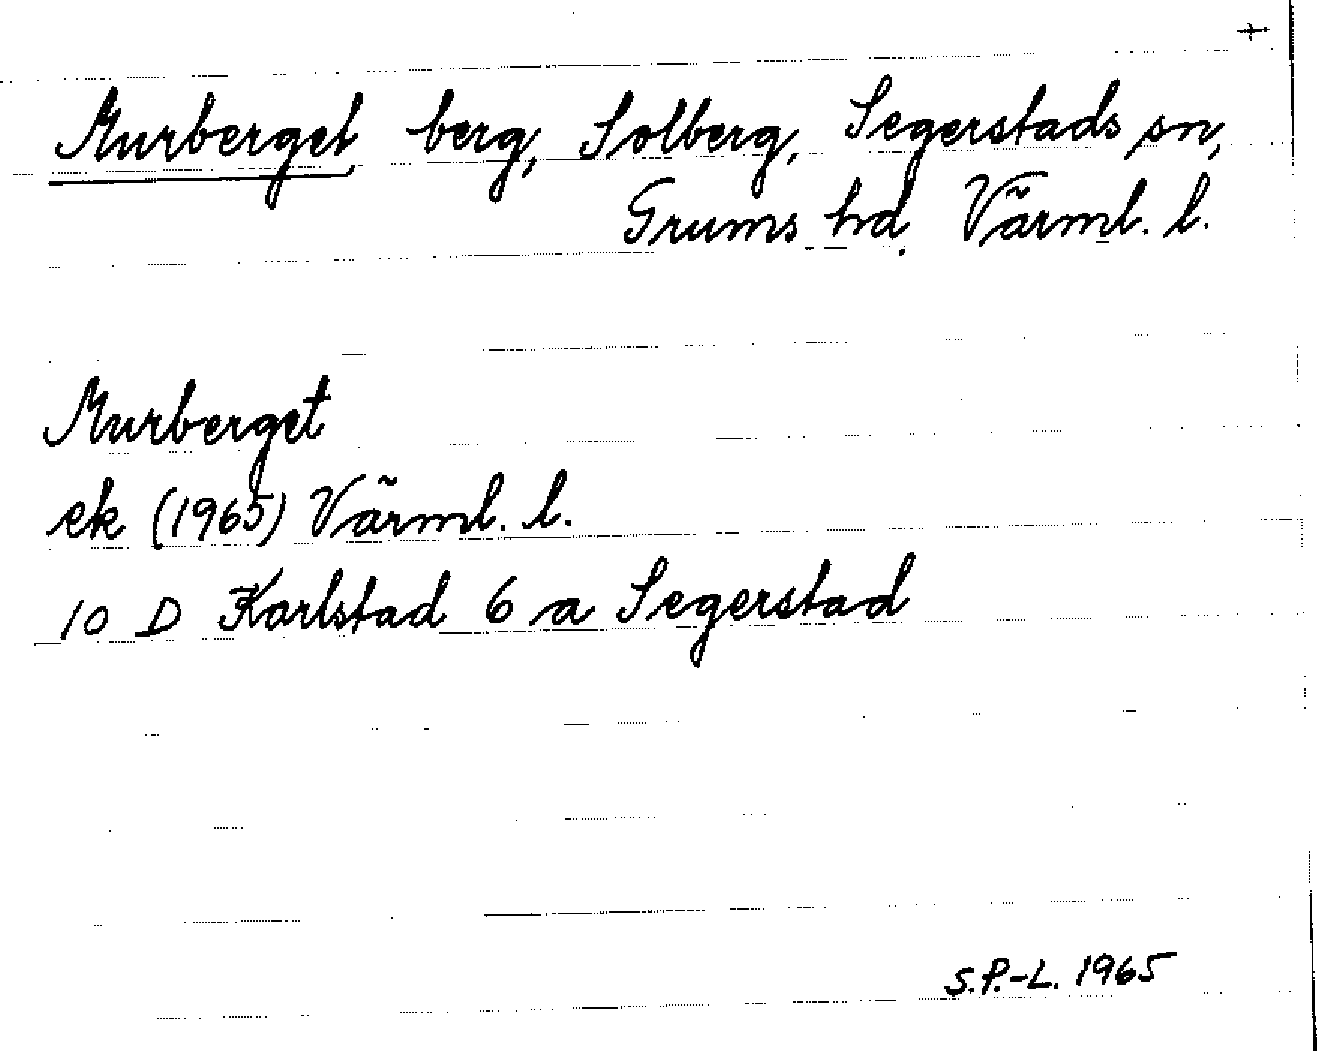 +
Murberget, berg, Solberg, Segerstads sn,
Grums hd. Värml. l.
Murberget
ek (1965) Värml. l.
10 D Karlstad 6 a Segerstad
S.P.-L. 1965